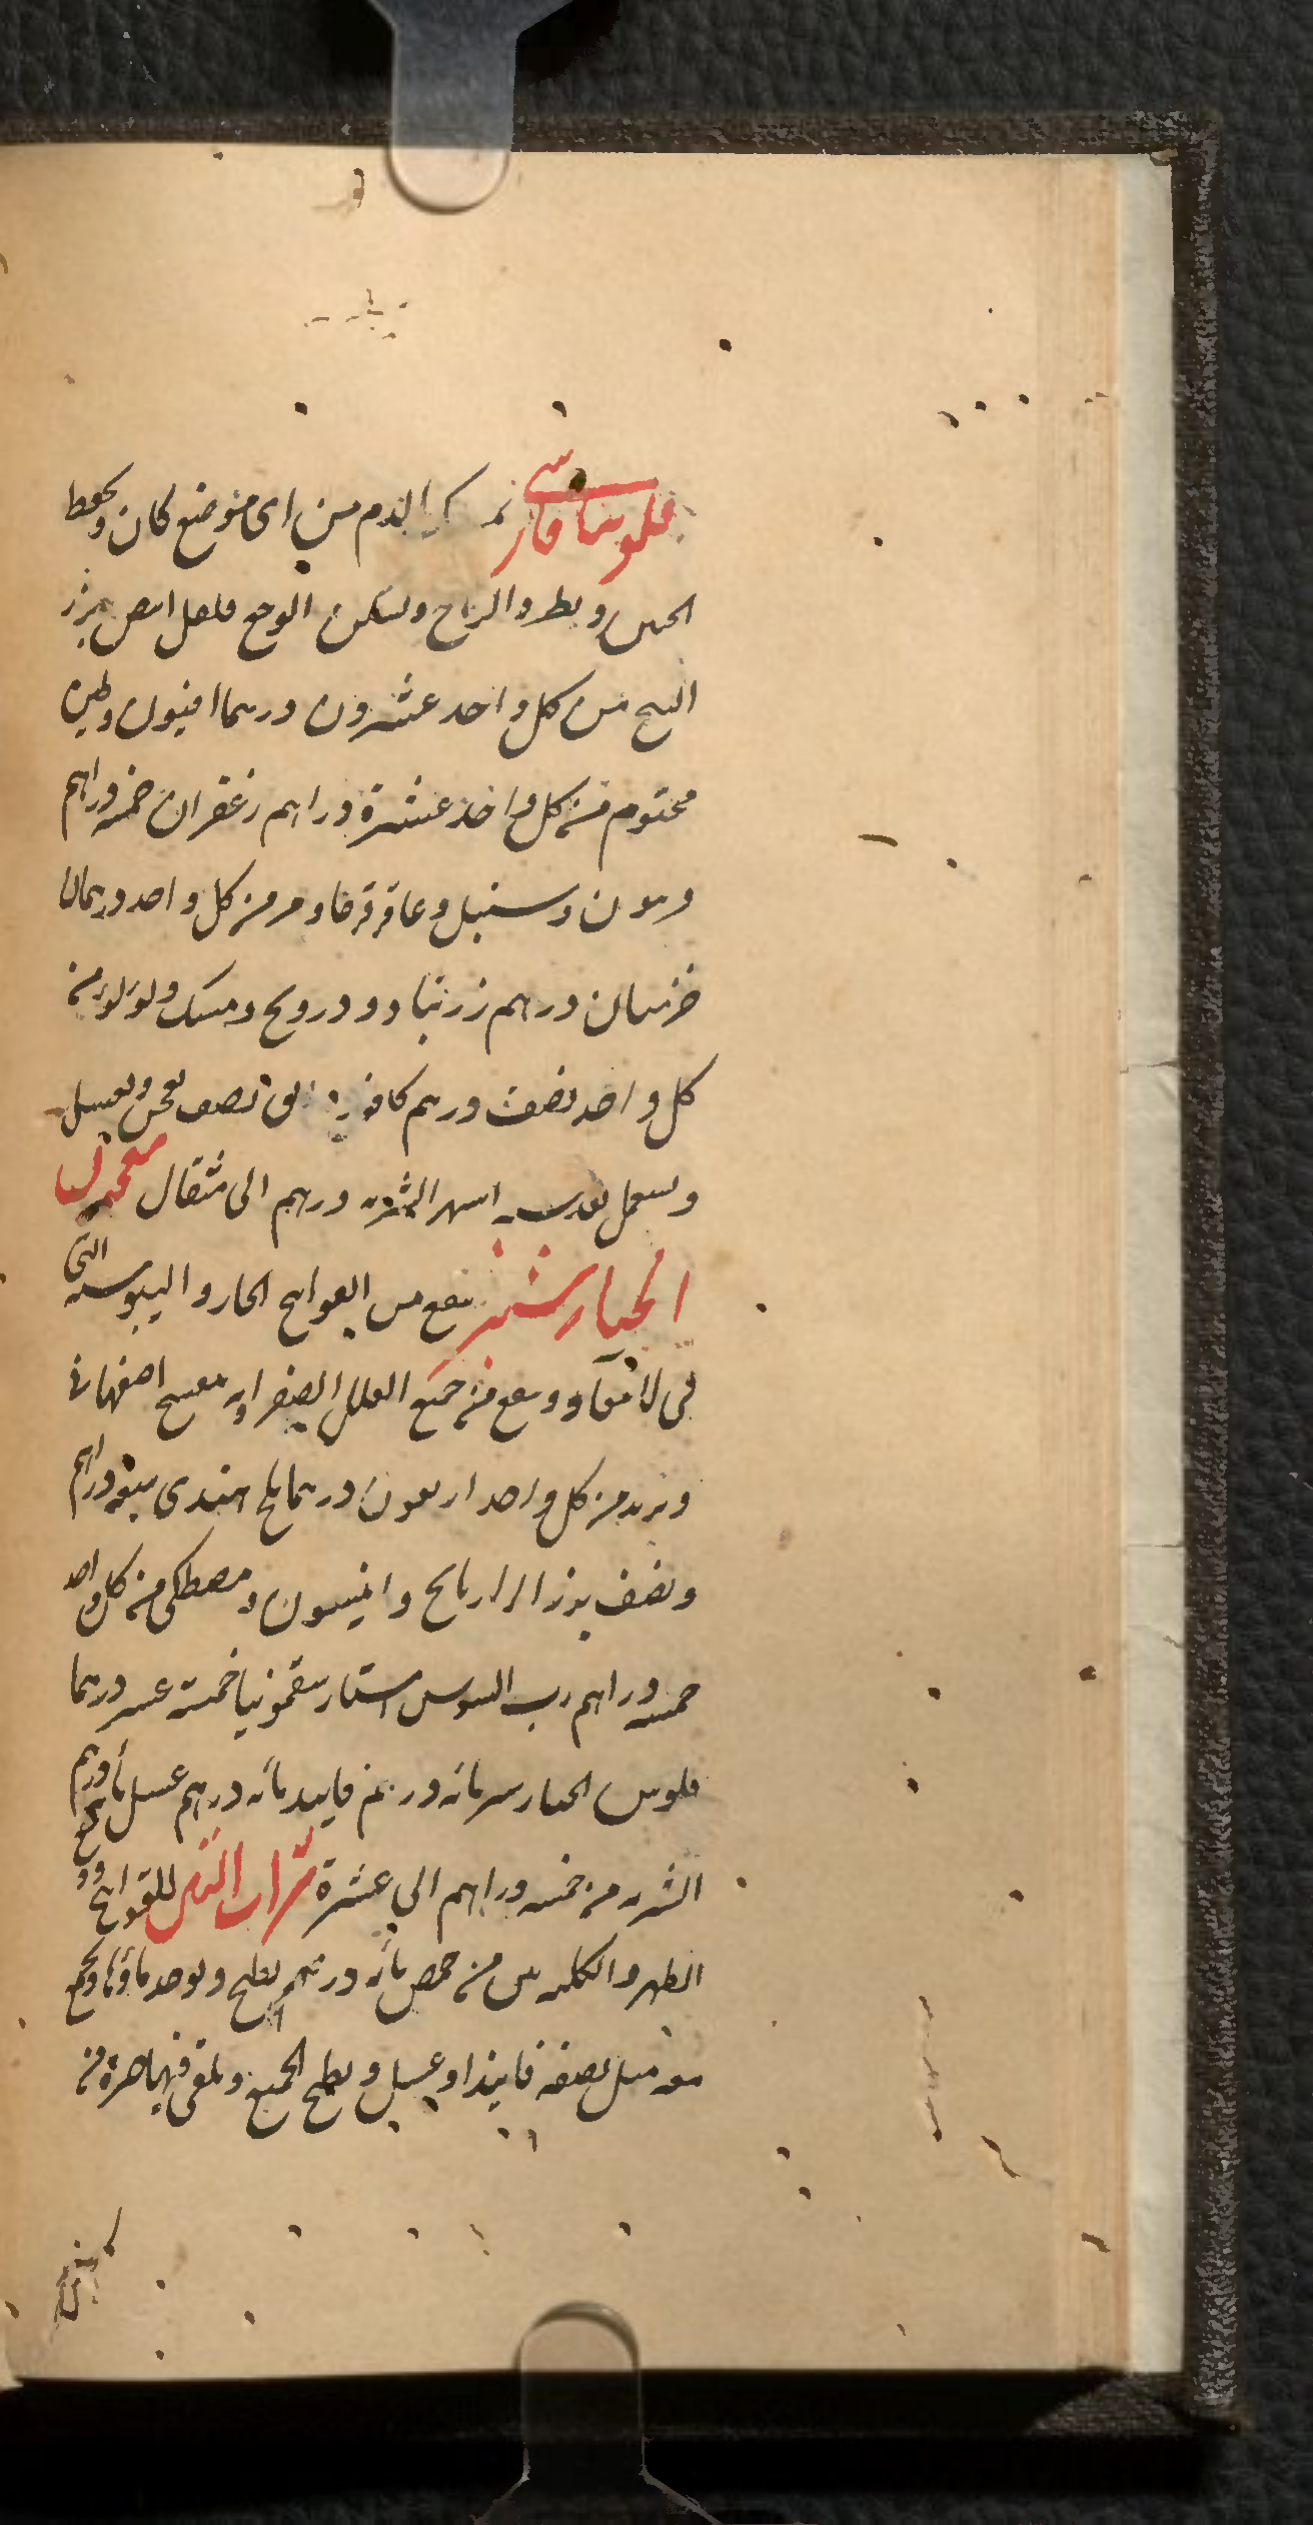 فلونيا فارسى الدم من اى موضع كان ويحفظ
الجنين ويطرد الرياح ويسكن الوجع فلفل ابيض بزر
البنج من كل واحد عشرون درهما افيون وطين
مختوم من كل واحد عشرة دراهم زعفران خمسه دراهم
وسنبل وعاقرقرحا ومر من كل واحد درهمان
درهم زرنباد ودرونج ومسك ولولو من
كل واحد نصف درهم كافور نصف يعجن وبعسل
ويستعمل بعد سته اشهر الشربه درهم الى مثقال معجون
الخيارشنبر ينفع من القولنج الحار واليبوسه التى
لا تنقاد وينفع من جميع العلل الصفراويه بنفسج اصفهانى
وتربد من كل واحد اربعون درهما هندى سبعه دراهم
ونصف بزر الرازيانج وانيسون ومصطكى من كل واحد
خمسه دراهم رب السوس استار سقمونيا خمسة عشر درهما
فلوس الخيارشنبر مائه درهم فانيد مائه درهم عسل مائه درهم يجمع
الشربه من خمسه دراهم الى عشرة شراب للقولنج ووجع
الظهر والكليتين من حمص مائه درهم يطبخ ويوخذ ماؤها ويجمع
معه مثل نصفه فانيذ او عسل ويطبخ الجميع ويلقى فيها صرة من